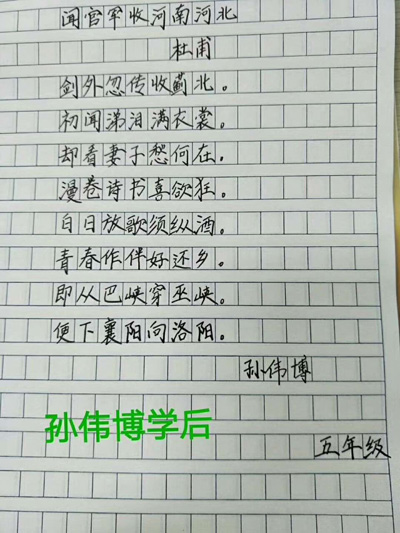 闻官军收河南河北
杜甫
剑外忽传收蓟北。
初闻涕泪满衣裳。
却看妻子愁何在。
漫卷诗书喜欲狂。
白日放歌须纵酒。
青春作伴好还乡。
即从巴峡穿巫峡。
便下襄阳向洛阳。
孙伟博
孙伟博学后
五年级